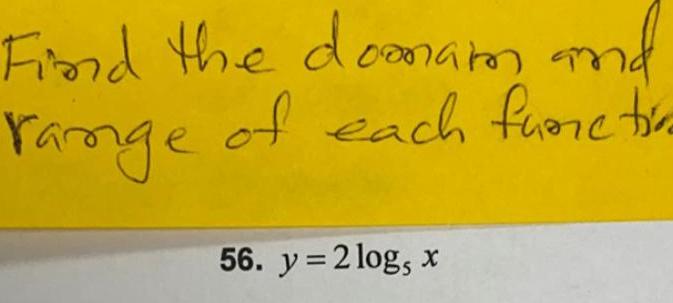 Find the domain and
range of each functio
56. y = 2 log₅ x